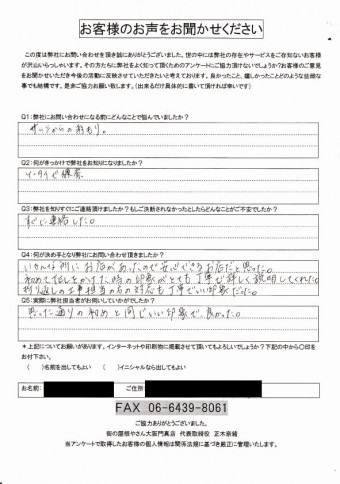 お客様のお声をお聞かせください
この度は弊社にお問い合わせを頂き誠にありがとうございました。世の中には弊社の存在やサービスをご存知ないお客様
が沢山いらっしゃいます。その方たちに弊社をよく知って頂くためのアンケートにご協力頂けないでしょうか?お客様のご意見
をお聞かせいただき今後の活動に反映させていただきたいと考えております。良かったこと、嬉しかったことどのような些細な
事でも結構です。是非ご協力お願い致します。(出来るだけ具体的に書いて頂ければ幸いです)
Q1:弊社にお問い合わせになる前にどんなことで悩んでいましたか?
からのあもり。
Q2:何がきっかけで弊社をお知りになりましたか?
検索
Q3:弊社を知りすぐにご連絡頂けましたか?もしご決断されなかったとしたらどんなことがご不安でしたか?
すぐに連絡した。
Q4:何が決め手となり弊社にお問い合わせ頂きましたか?
所にお店があったので安心できるお店だと思った。
初めてTELをかけた時の印象がとても丁寧で詳しく説明してくれた。
折り返しの工事担当の方の対応も丁寧でいい印象だった。
Q5:実際に弊社担当者がお伺いしていかがでしたか?
思った通りの初めと同じいい印象で、良かった。
*上記についてお願いがあります。インターネットや印刷物に掲載させて頂いてもよろしいでしょうか?下記の中から〇印を
お付け下さい。
( )名前を出してもよい ( )イニシャルなら出してもよい
お名前: ご住所
FAX 06-6439-8061
ご協力ありがとうございました。
街の屋根やさん大阪門真店 代表取締役 正木奈緒
当アンケートで取得したお客様の個人情報は関係法規に基づき厳正に管理いたします。